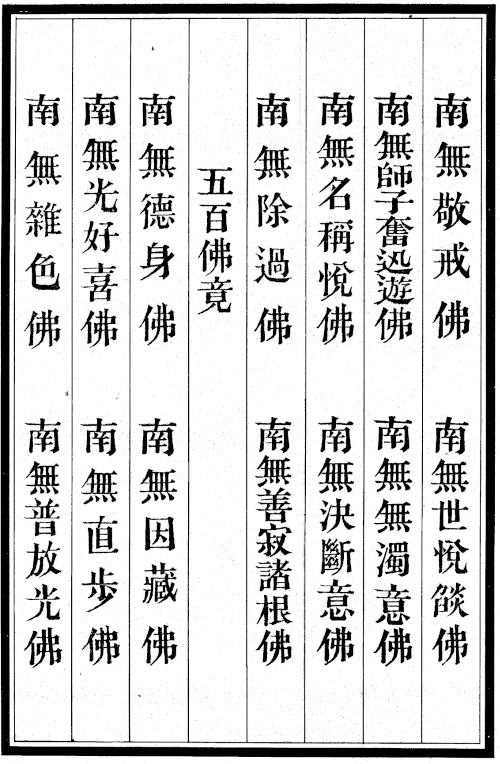 南無敬戒佛　南無世悅燄佛
南無師子奮迅遊佛　南無無濁意佛
南無名稱悅佛　南無決斷意佛
南無除過佛　南無善寂諸根佛
五百佛竟
南無德身佛　南無因藏佛
南無光好喜佛　南無直步佛
南無雜色佛　南無普放光佛